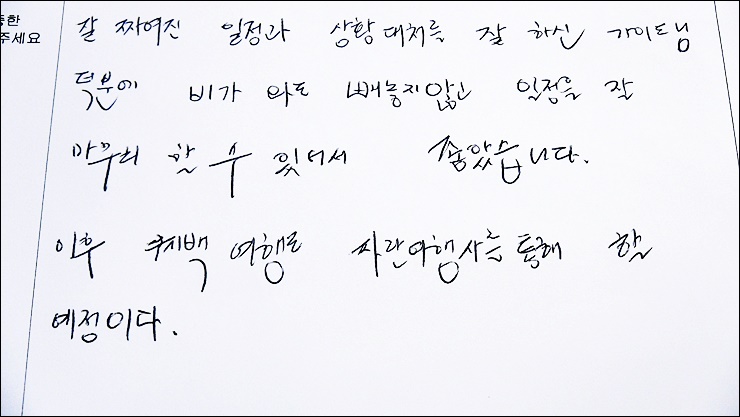 주세요
잘 짜여진 일정과 상황대처를 잘 하신 가이드님
덕분에 비가 와도 빼놓지않고 일정을 잘
마무리 할 수 있어서 좋았습니다.
이후 퀘백 여행도 파란여행사를 통해 할
예정이다.